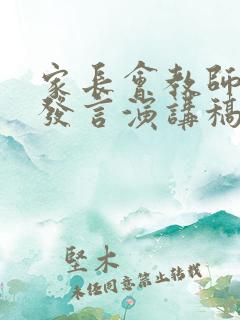 家長會教師
發言演講稿
堅木
未經同意禁止轉載